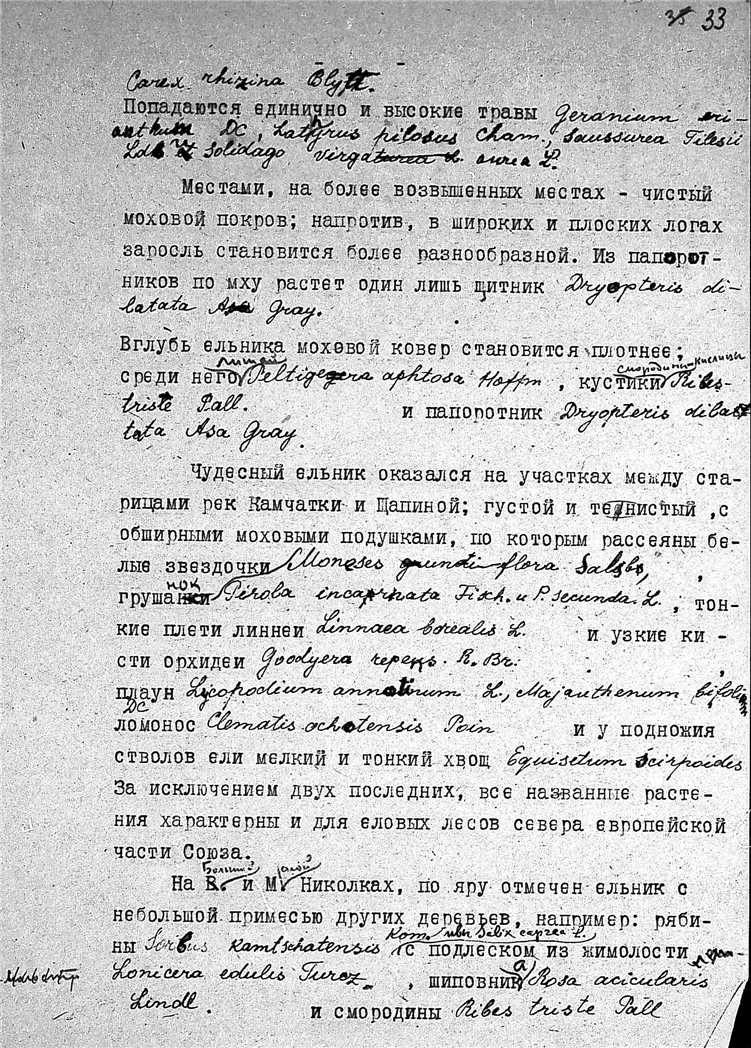 33
Carex rhizina Blytt.
Попадаются единично и высокие травы Geranium eri-
anthum DC, Lathyrus pilosus Cham., Saussurea Tilesii
Ldb и Solidago virga aurea L.
Местами, на более возвышенных местах - чистый
моховой покров; напротив, в широких и плоских логах
заросль становится более разнообразной. Из папорот-
ников по мху растет один лишь щитник Dryopteris di-
latata Asa Gray.
Вглубь ельника моховой ковер становится плотнее;
лишай смородины-кислицы
среди него Peltigera aphtosa Hoffm, кустики Ribes
triste Pall. и папоротник Dryopteris dila
tata Asa Gray.
Чудесный ельник оказался на участках между ста-
рицами рек Камчатки и Щапиной; густой и тенистый, с
обширными моховыми подушками, по которым рассеяны бе-
лые звездочки Moneses grandiflora Salsb,
нок
грушанки Pirola incarnata Fisch. и P. secunda L., тон-
кие плети линнеи Linnaea borealis L. и узкие ки -
сти орхидеи Goodyera repens R. Br.
плаун Lycopodium annotinum L., Majanthenum bifolium
DC
ломонос Clematis ochotensis Poin и у подножия
стволов ели мелкий и тонкий хвощ Equisetum scirpoides
За исключением двух последних, все названные расте-
ния характерны и для еловых лесов севера европейской
части Союза.
Большой Малой
На Б. и М. Николках, по яру отмечен ельник с
небольшой примесью других деревьев, например: ряби-
ивы Salix caprea L.
ны Sorbus kamtschatensis с подлеском из жимолости
Lonicera edulis Turcz, шиповника Rosa acicularis
Lindl. и смородины Ribes triste Pall